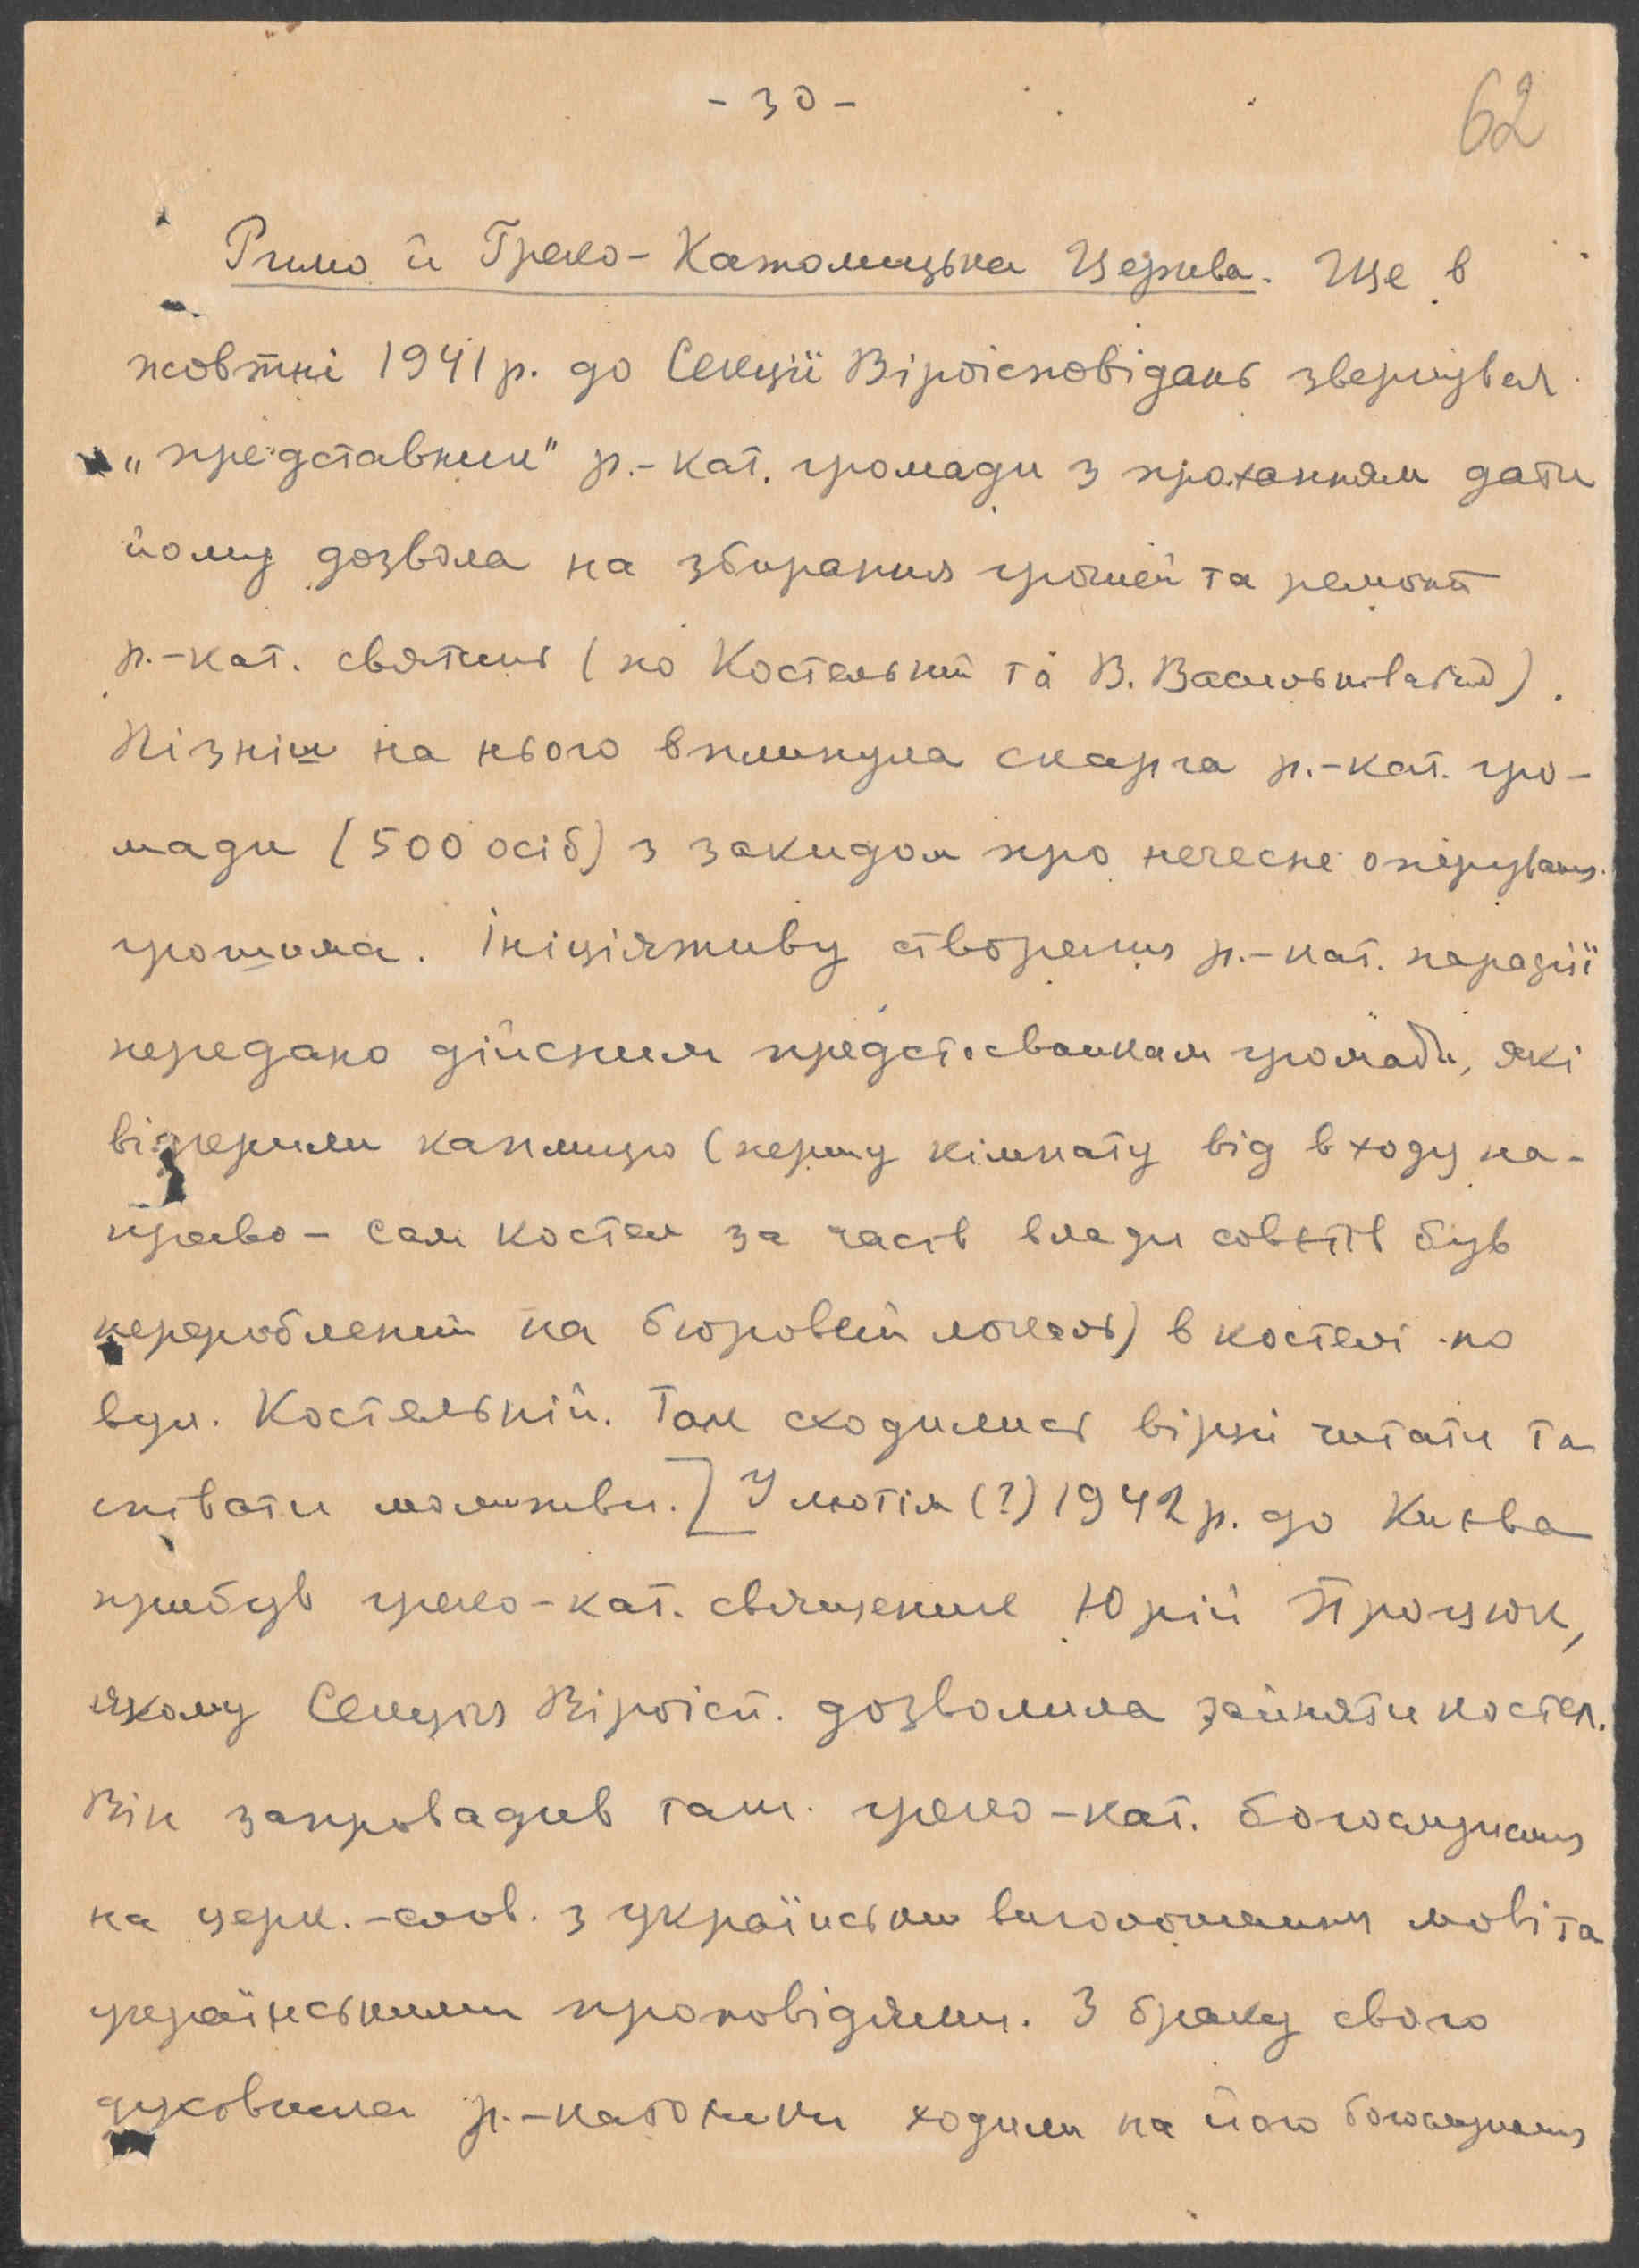 - 30 -
62
Римо й Греко-Католицька Церква. Ще в
жовтні 1941 р. до Секції Віроісповідань звернувся
„представник" р.-кат. громади з проханням дати
йому дозвола на збирання грошей та ремонт
р.-кат. святинь (по Костельній та В. Васильківській).
Пізніш на нього вплинула скарга р.-кат. гро-
мади (500 осіб) з закидом про нечесне оперування
грошима. Ініціятиву створення р.-кат. парафії
передано дійсним представникам громади, які
відчерили каплицю (першу кімнату від входу на-
право - сам костел за часів влади совєтів був
перероблений на бюровий локаль) в костелі по
вул. Костельній. Там сходились вірні читати та
співати молитви.] У лютім (?) 1942 р. до Києва
прибув греко-кат. священик Юрій Процюк,
якому Секція Віроісп. дозволила зайняти костел.
Він запровадив там греко-кат. богослуження
на церк.-слов. з українською виголошення мові та
українськими проповідями. З браку свого
духовника р.-католики ходили на його богослуження